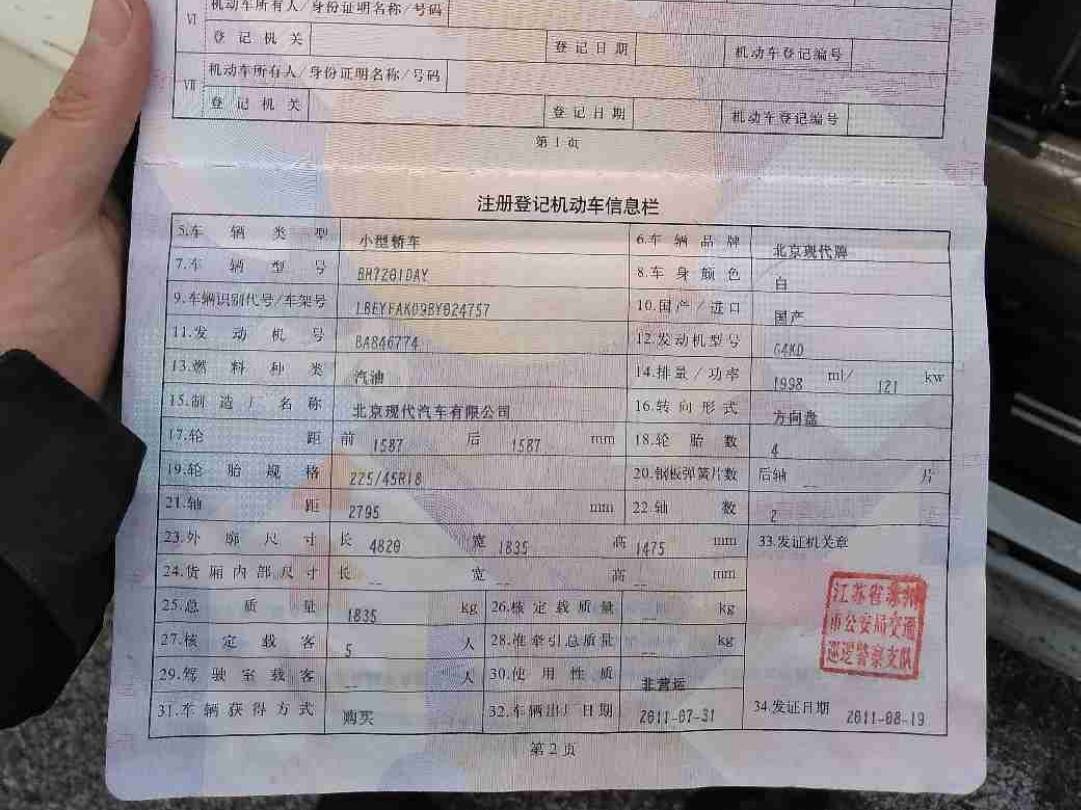 VI 机动车所有人/身份证明名称/号码
登记机关 登记日期 机动车登记编号
VII 机动车所有人/身份证明名称/号码
登记机关 登记日期 机动车登记编号
第1页
注册登记机动车信息栏
5.车辆类型 小型轿车 6.车辆品牌 北京现代牌
7.车辆型号 BH7201DAY 8.车身颜色 白
9.车辆识别代号/车架号 LBEYFAK09BY024757 10.国产/进口 国产
11.发动机号 BA846774 12.发动机型号 G4KD
13.燃料种类 汽油 14.排量/功率 1998 ml/ 121 kw
15.制造厂名称 北京现代汽车有限公司 16.转向形式 方向盘
17.轮距 前 1587 后 1587 mm 18.轮胎数 4
19.轮胎规格 225/45R18 20.钢板弹簧片数 后轴 -- 片
21.轴距 2795 mm 22.轴数 2
23.外廓尺寸 长 4820 宽 1835 高 1475 mm 33.发证机关章
24.货厢内部尺寸 长 -- 宽 -- 高 -- mm
25.总质量 1835 kg 26.核定载质量 -- kg
27.核定载客 5 人 28.准牵引总质量 -- kg
29.驾驶室载客 -- 人 30.使用性质 非营运
江苏省苏州
市公安局交通
巡逻警察支队
31.车辆获得方式 购买 32.车辆出厂日期 2011-07-31 34.发证日期 2011-08-19
第2页